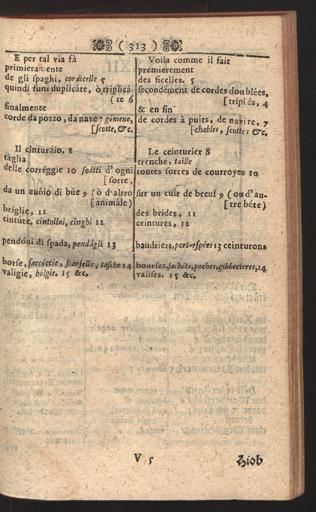 ( 313 )
E per tal via fà
primieramente
de gli spaghi, cordicelle 5
quindi funi duplicàre, ò triplicà-
[te 6
finalmente
corde da pozzo, da nave 7 gómene,
[scotte, &c.
Il cinturáio, 8
tàglia
delle corréggie 10 d'ogni
[sorte,
da un cuòio di bùe 9 (ò d'altro
[animàle)
briglie, 11
cintúre, cintolini, cinghi 12
pendóni di spada, pendágli 13
borse, saccóccie, scarselle, tasche 14
valigie, bolgie. 15 &c.
Voila comme il fait
premierement
des ficelles. 5
secondement de cordes doublées,
[triplés, 4
& en fin
de cordes à puits, de navire, 7
[chables, scottes &c.
Le ceinturier 8
trenche, taille
toutes sortes de courroyes 10
sur un cuir de bœuf 9 (ou d'au-
[tre bête)
des brides, 11
ceintures, 12
baudriers, port-espées 13 ceinturons
bourses, sachets, poches, gibbecieres, 14
valises. 15 &c.
V 5
Hiob